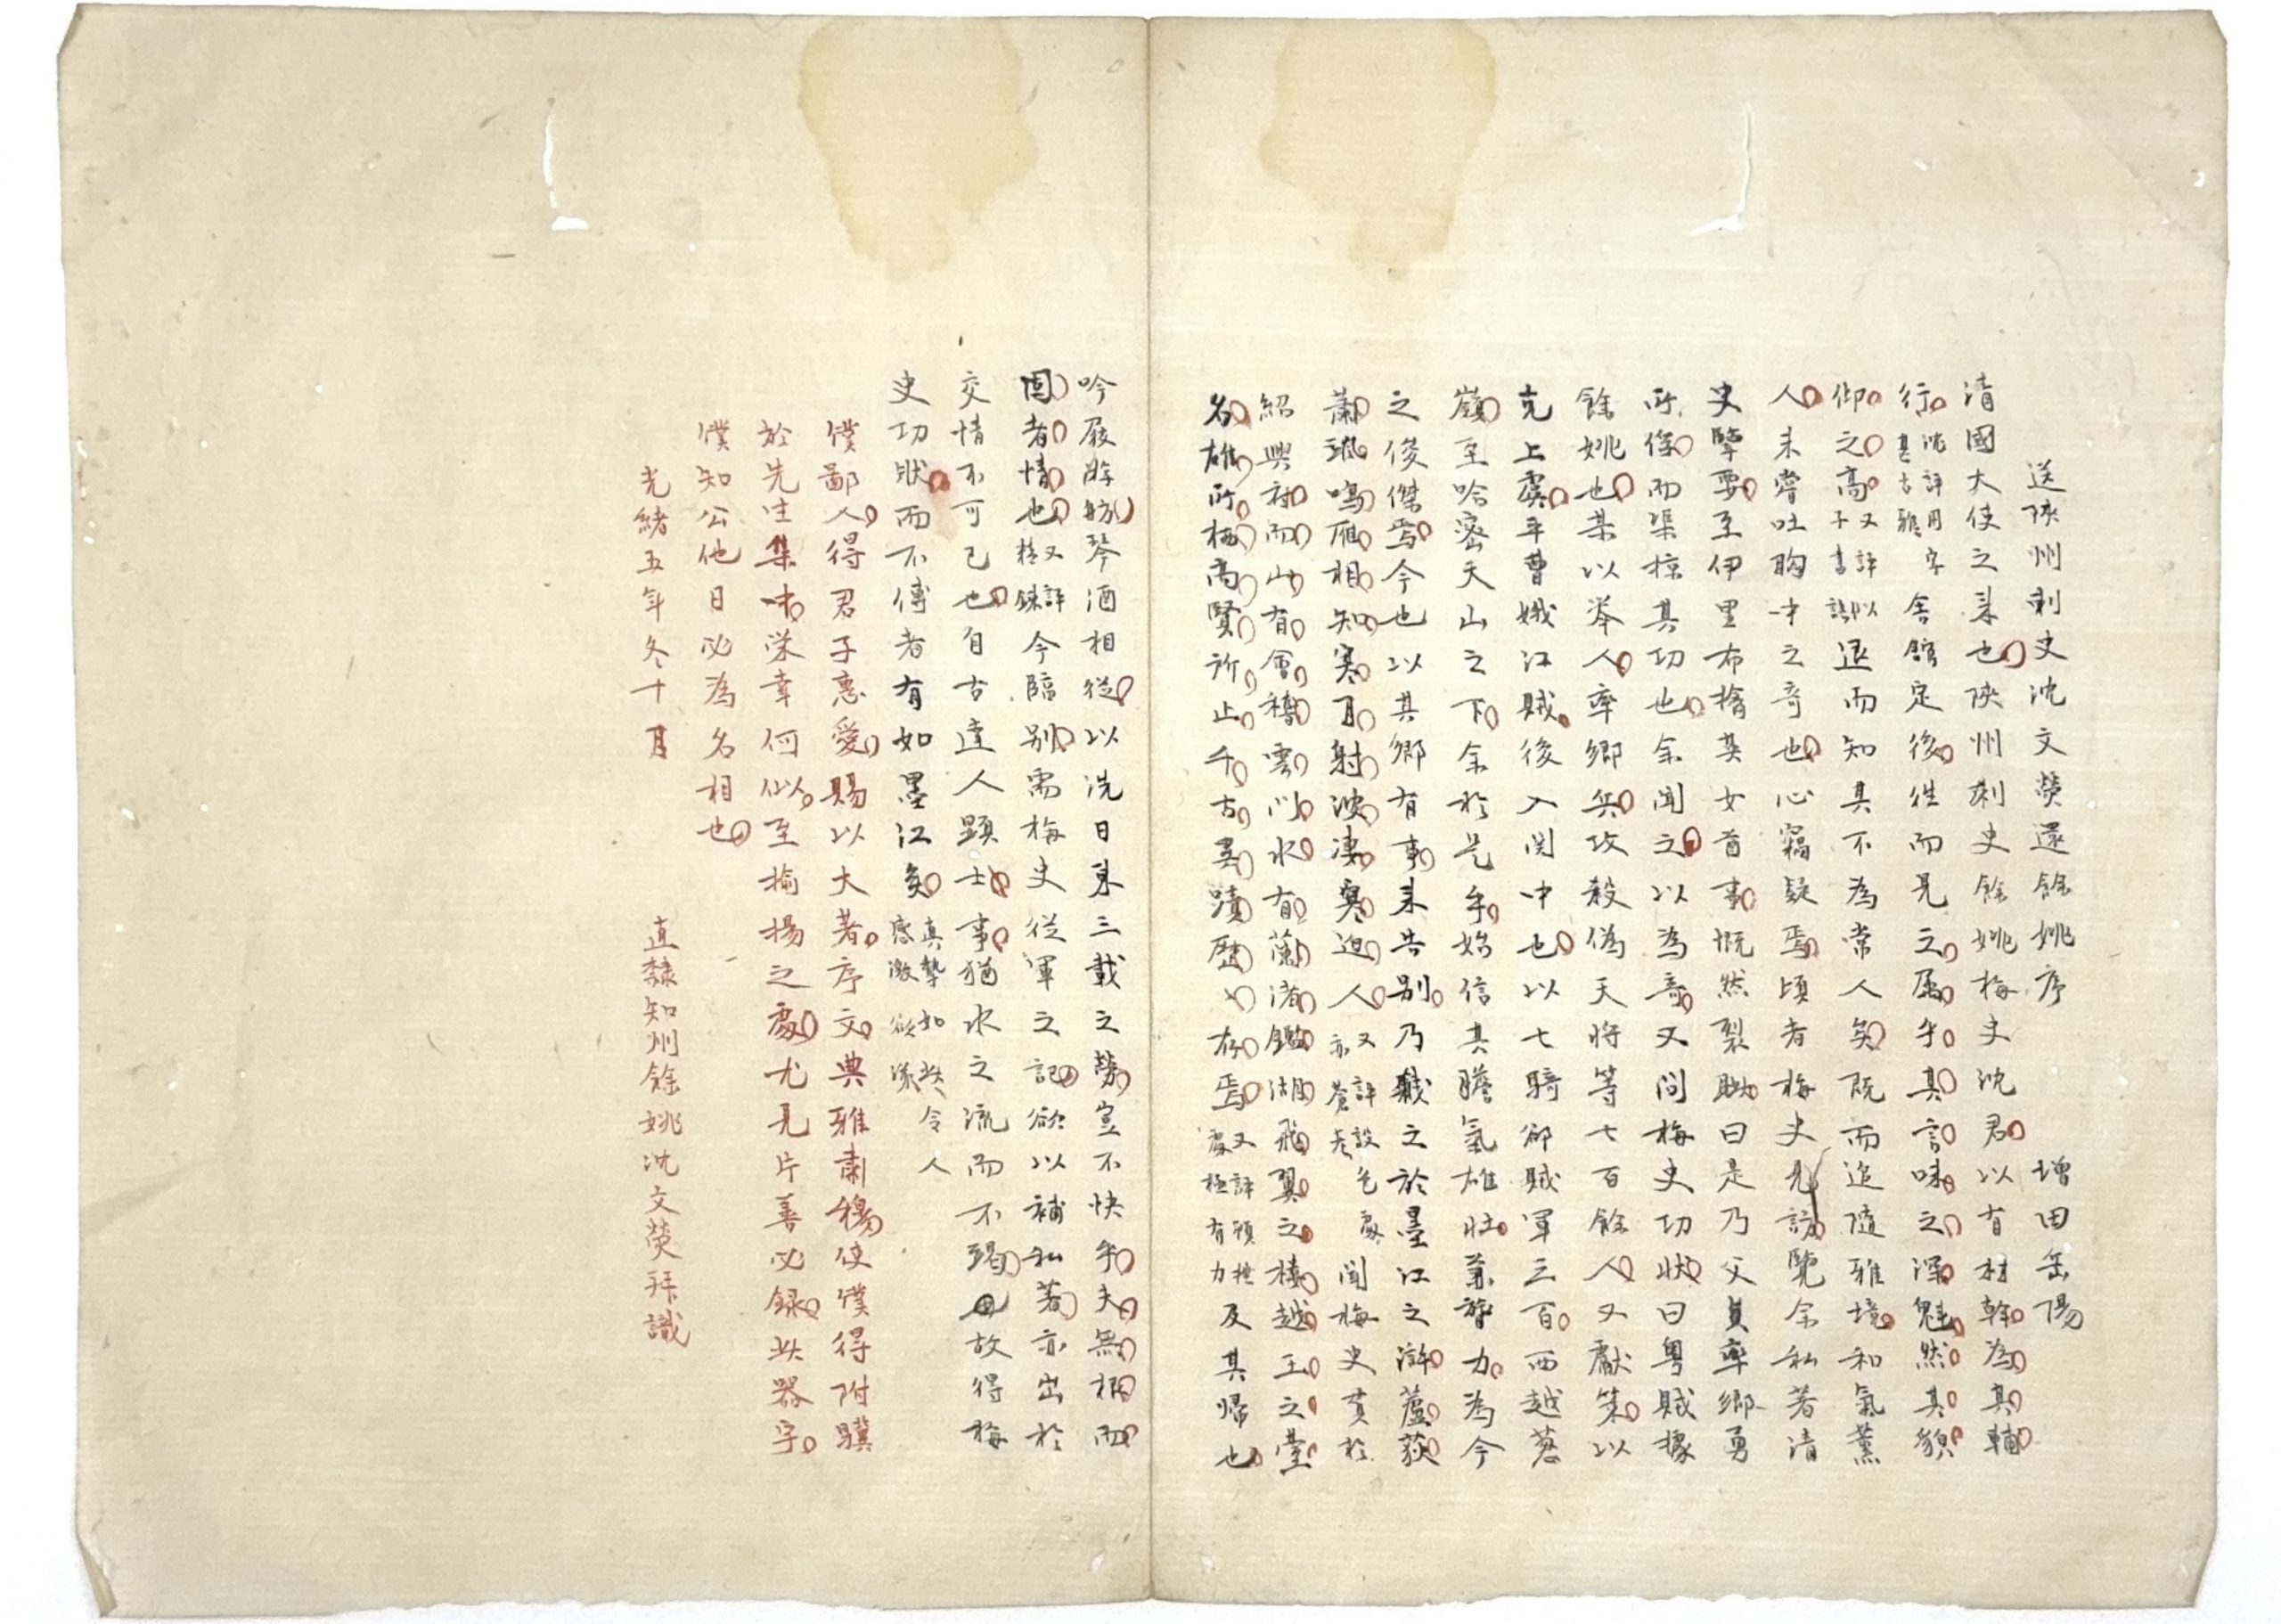 送陝州刺史沈文熒還餘姚序　增田岳陽
清國大使之来也陝州刺史餘姚梅史沈君以有材幹為其輔
行沈評用字甚古雅舍館定後往而見之属乎其言味之深魁然其貌
仰之高又評以子書讃退而知其不為常人矣既而追隨雅境和氣薰
人未嘗吐胸中之奇也心竊疑焉頃者梅史見訪覽余私著清
史擥要至伊里布擒英女首事慨然裂眦曰是乃父員率鄉勇
所俘而渠掠其功也余聞之以為奇又問梅史功狀曰粤賊據
餘姚也某以举人率鄉兵攻殺偽天將等七百餘人又獻策以
克上虞平曹娥江賊後入関中也以七騎郤賊軍三百西越葱
嶺至哈密天山之下余於是乎始信其膽氣雄壮兼智力為今
之俊傑焉今也以其鄉有事来告別乃餞之於墨江之滸蘆荻
蕭瑟鳴雁相知寒月射波凄寒迫人又評設色處亦蒼老聞梅史貫於
紹興府而山有會稽雲門水有蘭渚鑑湖飛翼之樓越王之臺
名雄所栖高賢所止千古異蹟歷々存焉又評頓挫處極有力及其帰也
吟屐游舫琴酒相從以洗日東三載之勞豈不快乎夫無相而
固者情也又評精鍊今臨別需梅史從軍之記欲以補私著亦出於
交情不可已也自古達人顕士事猶水之流而不竭也故得梅
史功狀而不傳者有如墨江矣真摯如此令人感激欲涕
僕鄙人得君子惠愛賜以大著序文典雅肅穆使僕得附驥
於先生集中榮幸何似至揄揚之處尤見片善必録此器宇
僕知公他日必為名相也
光緒五年冬十月　直隸知州餘姚沈文熒拜識